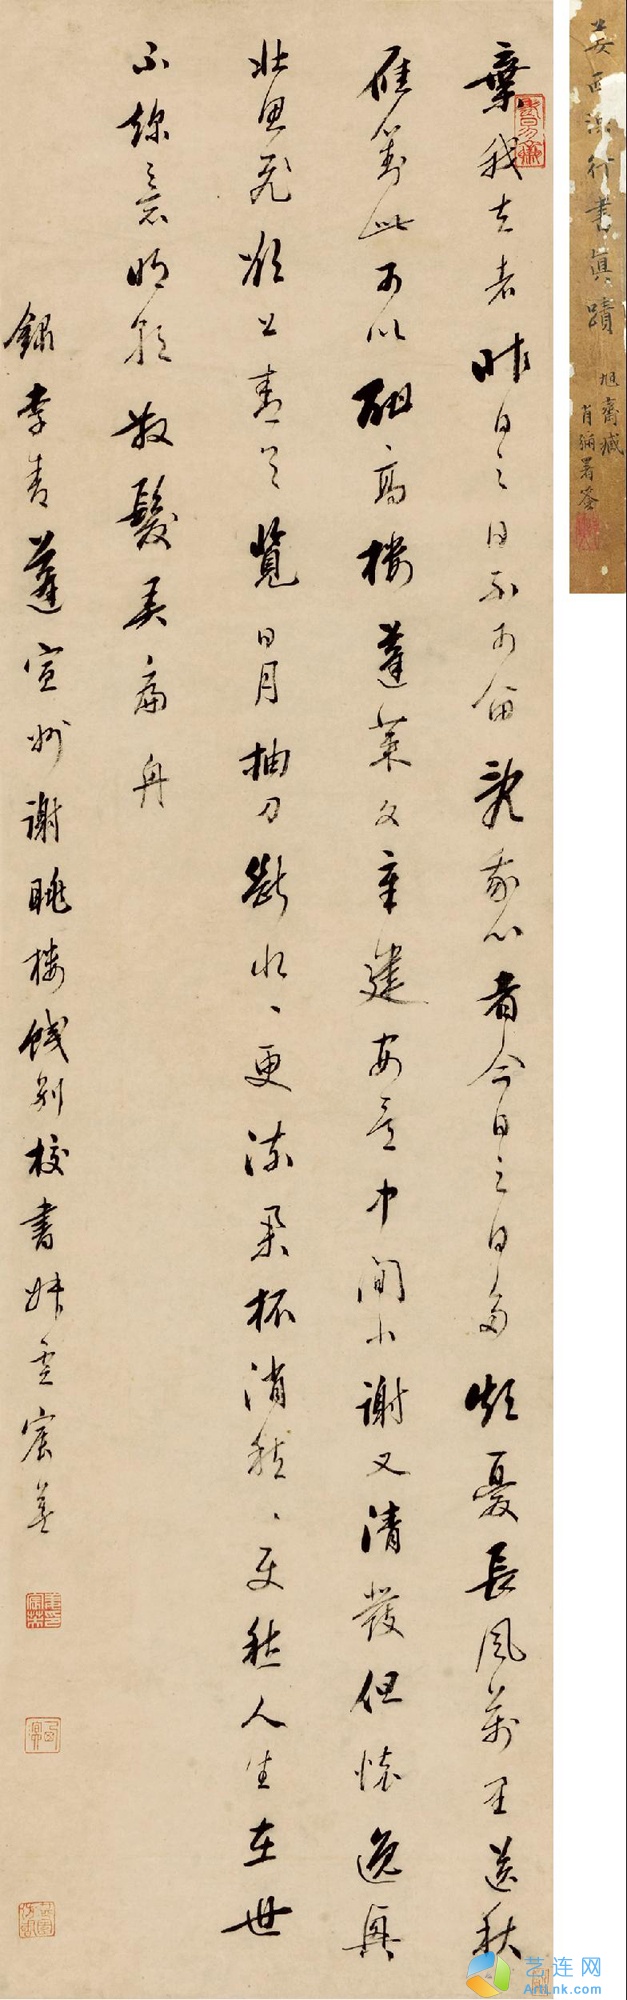 棄我去者昨日之日不可留亂我心者今日之日多煩憂長風萬里送秋
雁對此可以酣高樓蓬萊文章建安骨中間小謝又清發但懷逸興
壯思飛欲上青天覽日月抽刀斷水、更流舉杯消愁、更愁人生在世
不稱意明朝散髮弄扁舟
錄李青蓮宣州謝眺樓餞別校書叔雲宸英
姜西溟行書眞蹟
旭齋藏
署签
艺连网
Artlnk.com